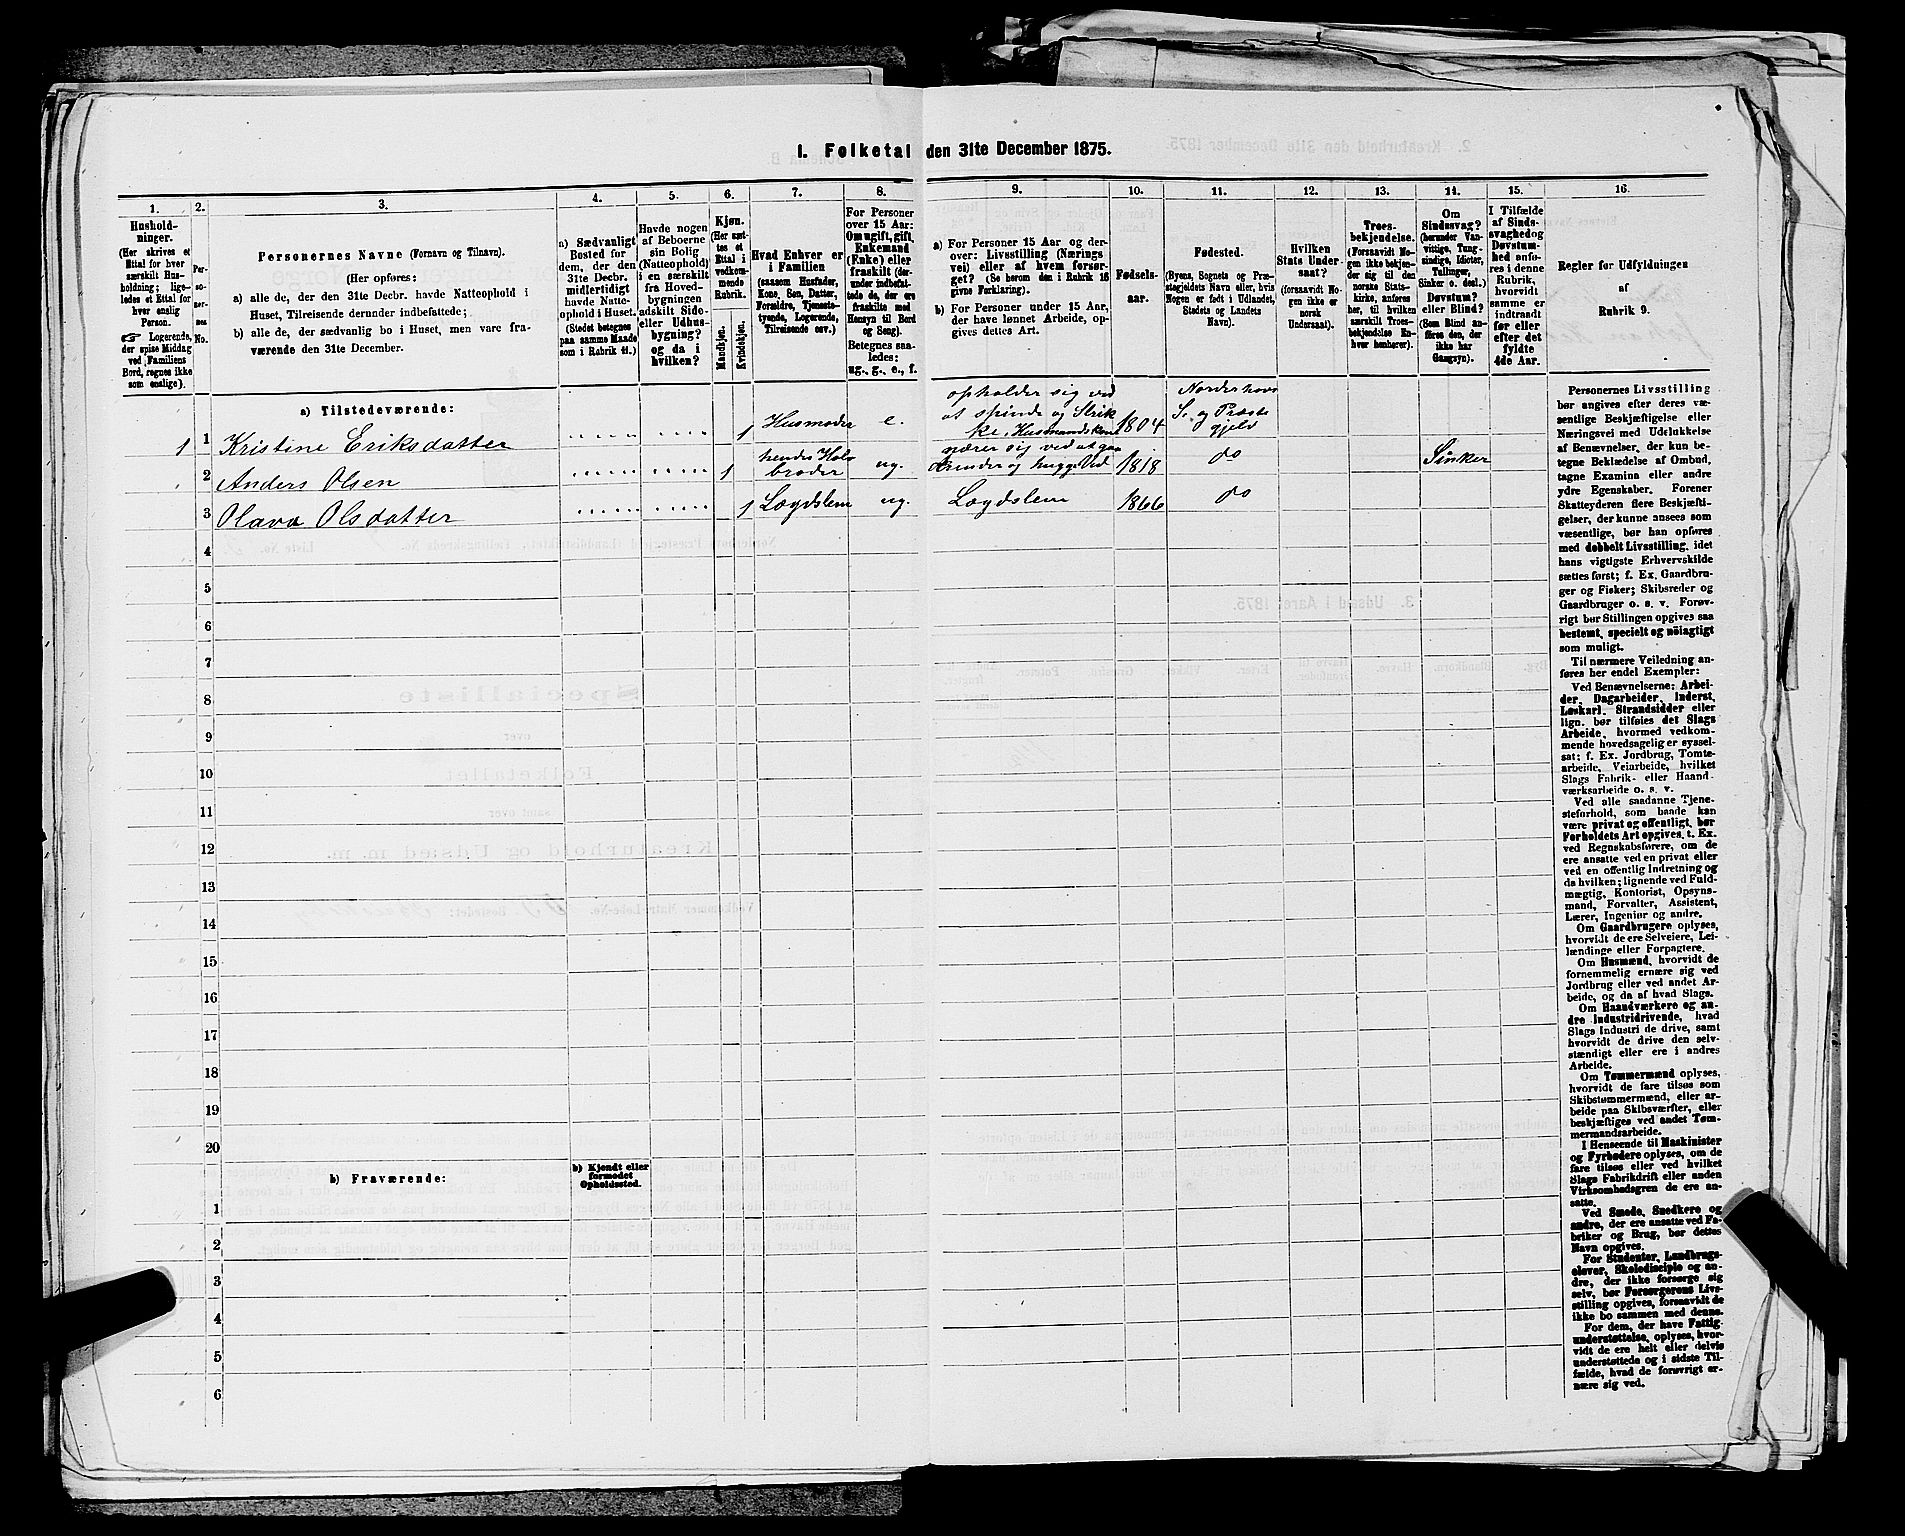 I. Folketal den 31te December 1875.
1.
2.
3.
4.
5.
6.
7.
8.
9.
10.
11.
12.
13.
14.
15.
16.
Hushold-
ninger.
(Her skrives et
Ettal for hver
særskilt Hus-
holdning; lige-
ledes et Ettal for
hver enslig
Person.
☞ Logerende,
der spise Middag
ved Familiens
Bord, regnes ikke
som enslige).
Per-
so-
ner-
nes
No.
Personernes Navne (Fornavn og Tilnavn).
(Her opføres:
a) alle de, der den 31te Decbr. havde Natteophold i
Huset, Tilreisende derunder indbefattede;
b) alle de, der sædvanlig bo i Huset, men vare fra-
værende den 31te December.
a) Sædvanligt
Bosted for
dem, der den
31te Decbr.
midlertidigt
havde Natte-
ophold i Huset.
(Stedet betegnes
paa samme Maade
som i Rubrik 11.)
Havde nogen
af Beboerne
sin Bolig
(Natteophold)
i en særskilt
fra Hoved-
bygningen
adskilt Side-
eller Udhus-
bygning?
og da i
hvilken?
Kjøn.
(Her sæt-
tes et
Ettal i
vedkom-
mende
Rubrik.
Mandkjøn.
Kvindekjøn.
Hvad Enhver er
i Familien
(saasom Husfader,
Kone, Søn, Datter,
Forældre, Tjeneste-
tyende, Logerende,
Tilreisende osv.)
For Personer
over 15 Aar:
Om ugift, gift,
Enkemand
(Enke) eller
fraskilt (der-
under indbefat-
tede de, der ere
fraskilte med
Hensyn til Bord
og Seng).
Betegnes saa-
ledes:
ug., g., e., f.
a) For Personer 15 Aar og der-
over: Livsstilling (Nærings
vei) eller af hvem forsør-
get? (Se herom den i Rubrik 16
givne Forklaring).
b) For Personer under 15 Aar,
der have lønnet Arbeide, op-
gives dettes Art.
Fødsels-
aar.
Fødested.
(Byens, Sognets og Præ-
stegjeldets Navn eller, hvis
Nogen er født i Udlandet,
Stedets og Landets
Navn).
Hvilken
Stats Under-
saat?
(forsaavidt No-
gen ikke er
norsk
Undersaat).
Troes-
bekjendelse.
(Forsaavidt No-
gen ikke bekjen-
der sig til den
norske Stats-
kirke, anføres
her, til hvilken
særskilt Troes-
bekjendelse En-
hver henhører).
Om
Sindssvag?
(herunder Van-
vittige, Tung-
sindige, Idioter,
Tullinger,
Sinker o. desl.)
Døvstum?
eller Blind?
(Som Blind an-
føres den, der
ikke har
Gangsyn).
I Tilfælde
af Sinds-
svaghed og
Døvstum-
hed anfø-
res i denne
Rubrik,
hvorvidt
samme er
indtraadt
før eller
efter det
fyldte
4de Aar.
Regler for Udfyldningen
af
Rubrik 9.
a) Tilstedeværende:
1 1 Kristine Eriksdatter 1 Husmoder e. opholder sig ved
at spinde og Strik
ke, Husmandskone 1804 Norderhovs
S. og Præste
gjeld
2 Anders Olsen 1 hendes Halv
broder ug. nærer sig ved at gaa
Ærinder og hugge Ved 1818 do Sinker
3 Olava Olsdatter 1 Lægdslem ug. Lægdslem 1866 do
4
5
6
7
8
9
10
11
12
13
14
15
16
17
18
19
20
b) Fraværende:
b) Kjendt eller
formodet
Opholdssted.
1
2
3
4
5
6
Personernes Livsstilling
bør angives efter deres væ-
sentlige Beskjæftigelse eller
Næringsvei med Udelukkelse
af Benævnelser, der kun be-
tegne Beklædelse af Ombud,
tagne Examina eller andre
ydre Egenskaber. Forener
Skatteyderen flere Beskjæfti-
gelser, der kunne ansees som
væsentlige, bør han opføres
med dobbelt Livsstilling, idet
hans vigtigste Erhvervskilde
sættes først; f. Ex. Gaardbru-
ger og Fisker; Skibsreder og
Gaardbruger o. s. v. Forøv-
rigt bør Stillingen opgives saa
bestemt, specielt og nöiagtigt
som muligt.
Til nærmere Veiledning an-
føres her endel Exempler:
Ved Benævnelserne: Arbei-
der, Dagarbeider, Inderst,
Løskarl, Strandsidder eller
lign. bør tilføies det Slags
Arbeide, hvormed vedkom-
mende hovedsagelig er syssel-
sat; f. Ex. Jordbrug, Tomte-
arbeide, Veiarbeide, hvilket
Slags Fabrik- eller Haand-
værksarbeide o. s. v.
Ved alle saadanne Tjene-
steforhold, som baade kan
være privat og offentligt, bør
Forholdets Art opgives, t. Ex.
ved Regnskabsførere, om de
ere ansatte ved en privat eller
ved en offentlig Indretning og
da hvilken; lignende ved Fuld-
mægtig, Kontorist, Opsyns-
mand, Forvalter, Assistent,
Lærer, Ingeniør og andre.
Om Gaardbrugere oplyses,
hvorvidt de ere Selveiere, Lei-
lændinge eller Forpagtere.
Om Husmænd, hvorvidt de
fornemmelig ernære sig ved
Jordbrug eller ved andet Ar-
beide, og da af hvad Slags.
Om Haandværkere og an-
dre Industridrivende, hvad
Slags Industri de drive, samt
hvorvidt de drive den selv-
stændigt eller ere i andres
Arbeide.
Om Tømmermænd oplyses,
hvorvidt de fare tilsøs som
Skibstømmermænd, eller ar-
beide paa Skibsværfter, eller
beskjæftiges ved andet Tøm-
mermandsarbeide.
I Henseende til Maskinister
og Fyrbødere oplyses, om de
fare tilsøs eller ved hvilket
Slags Fabrikdrift eller anden
Virksomhedsgren de ere an-
satte.
Ved Smede, Snedkere og
andre, der ere ansatte ved Fa-
briker og Brug, bør dettes
Navn opgives.
For Studenter, Landbrugs-
elever, Skoledisciple og an-
dre, der ikke forsørge sig
selv, bør Forsørgerens Livs-
stilling opgives, forsaavidt de
ikke bo sammen med denne.
For dem, der have Fattig-
understøttelse, oplyses, hvor-
vidt de ere helt eller delvis
understøttede og i sidste Til-
fælde, hvad de forøvrigt er-
nære sig ved.